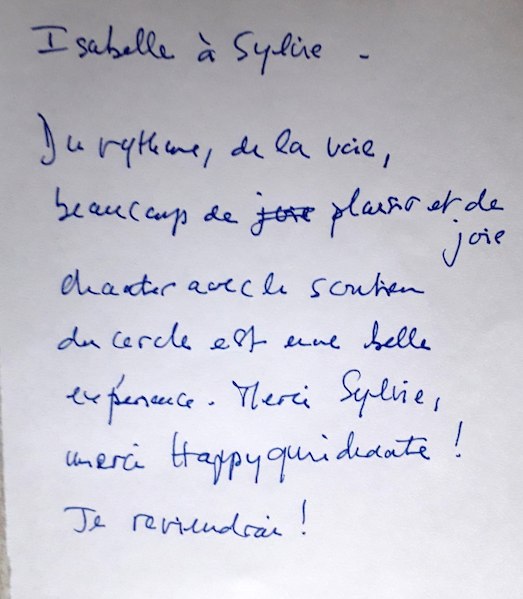 Isabelle à Sylvie -
Du rythme, de la voie,
beaucoup de joie plaisir et de
joie
chanter avec le soutien
du cercle est une belle
expérience. Merci Sylvie,
merci Happy !
Je reviendrai !